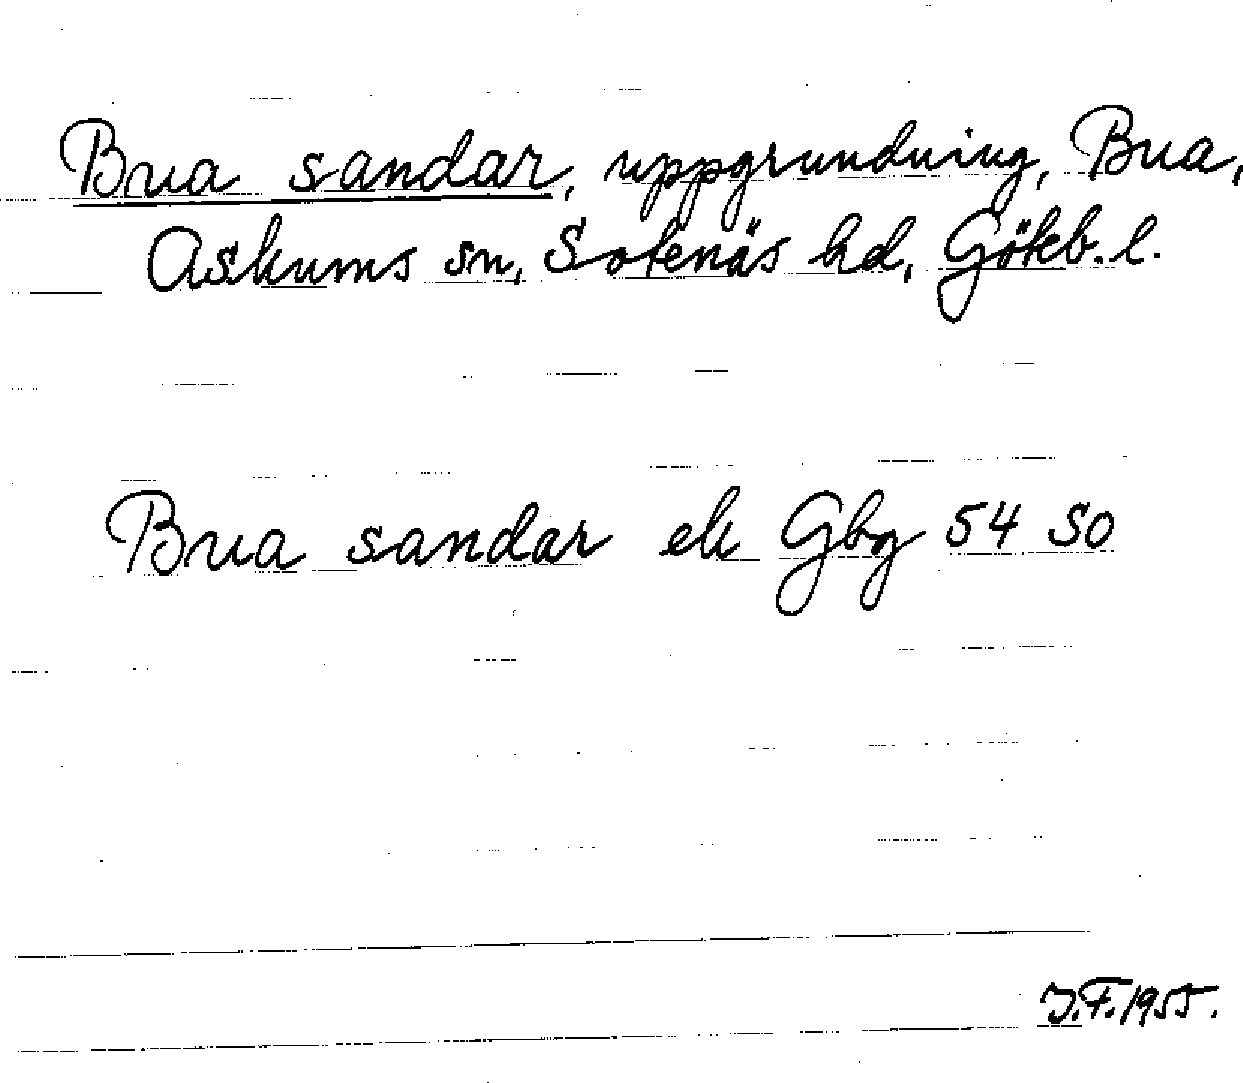 Bua sandar, uppgrundning, Bua,
Askums sn, Sotenäs hd, Göteb. l.
Bua sandar ek Gbg 54 SO
J.F. 1955.